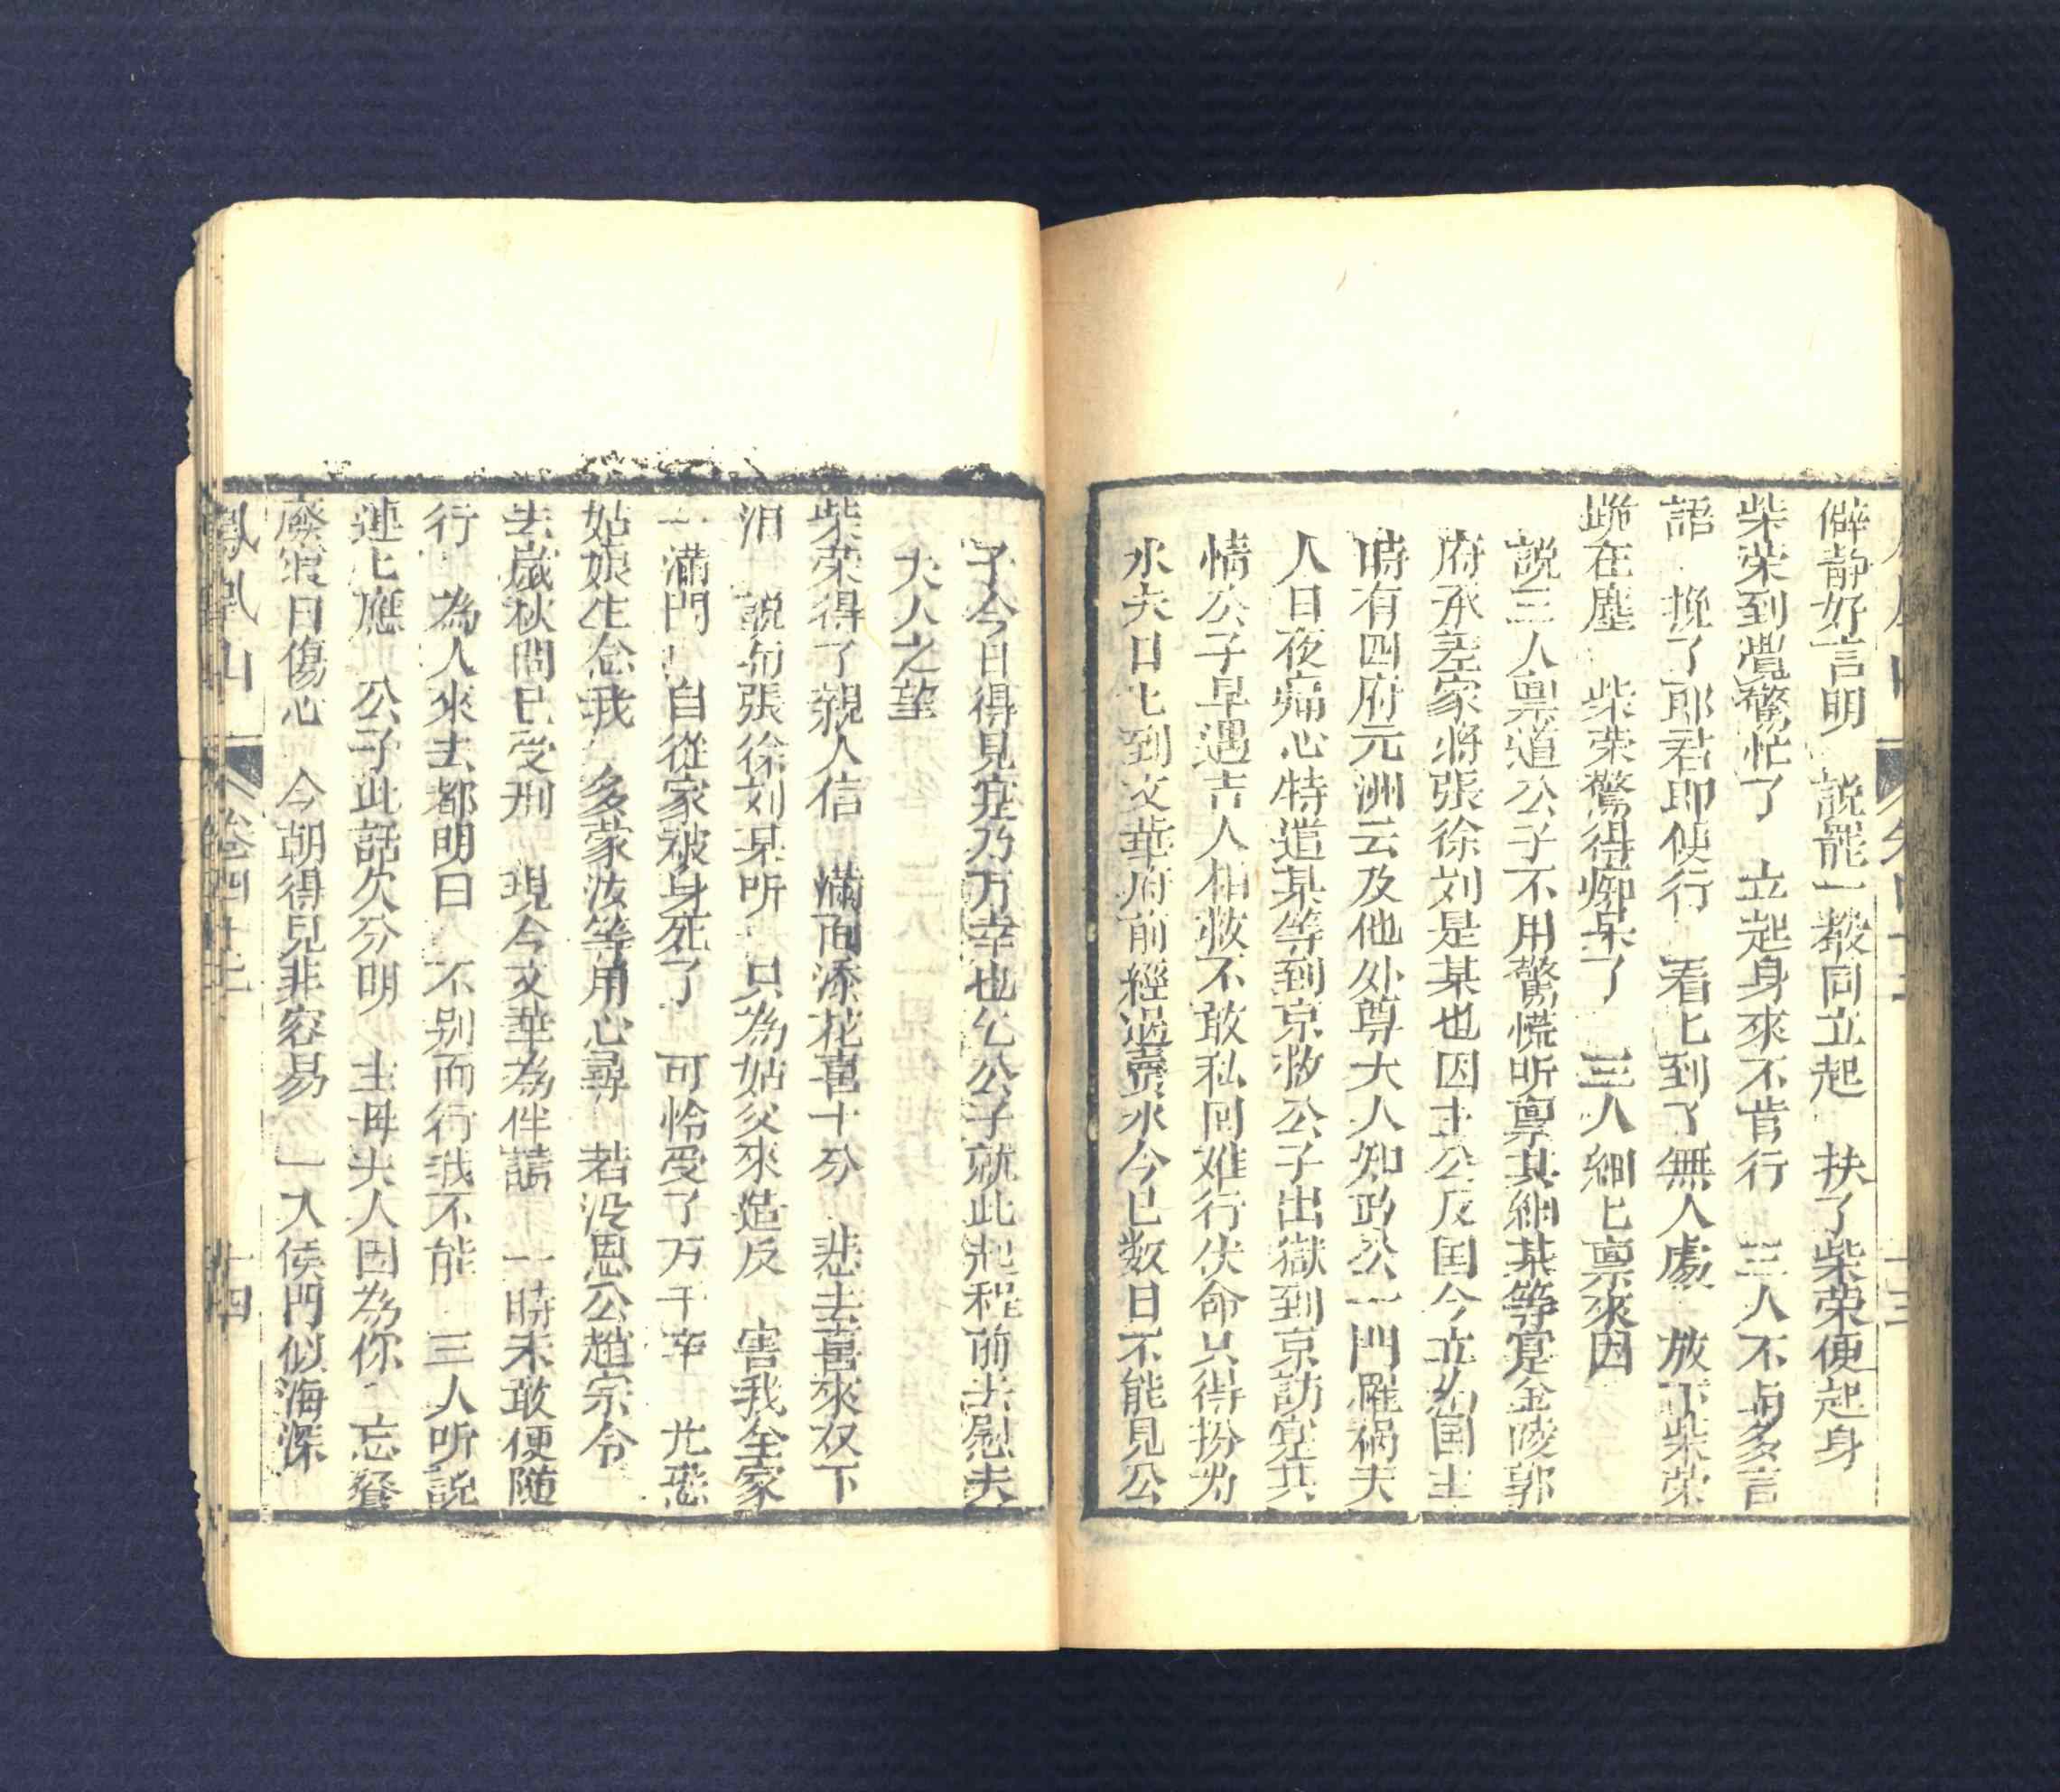 僻静好言明　説罷一般同立起　扶了柴荣便起身
柴荣到覺驚忙了　立起身來不肯行　三人不与多言
語　挽了郎君即便行　看匕到了無人處　放下柴荣
跪在塵　柴荣驚得痴呆了　三人細匕禀來因
説三人禀道公子不用驚慌听禀其細某等寔金陵郭
府承差家將張徐刘是某也因主公反国今立約国主
時有四府元洲云及他处尊大人知政公一門罹禍夫
人日夜痛心特遣某等到京救公子出嶽到京訪寔其
情公子早遇吉人相救不敢私回难行伏命只得扮为
水夫日匕到文華府前經過賣水今已数日不能見公
子今日得見寔乃万幸也乞公子就此起程前去慰夫
大人之望
柴荣得了親人信　滿面添花喜十分　悲去喜來双下
泪　説勾張徐刘某听　只為姑父來造反　害我全家
一滿門　自從家被身死了　可怜受了万千辛　尤恐
姑娘生念我　多蒙汝等用心尋　若没恩公趙宗令
去歲秋間已受刑　現今文華為伴讀　一時未敢便隨
行　為人來去都明白　不别而行我不能　三人听説
連匕應　公子此話欠分明　主母夫人因為你　忘餐
廢寝日傷心　今朝得見非容易　一入侯門似海深
鳳凰山　卷四十三　十四